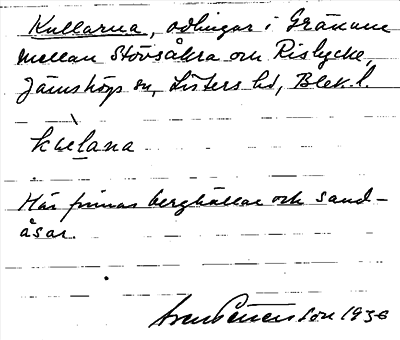 Kullarna, odlingar i Gränum
mellan Stövsåkra och Rislycke,
Jämshögs sn, Listers hd, Blek. l.
kuLana
Här finnas berghällar och sand-
åsar.
Sven Petersson 1936